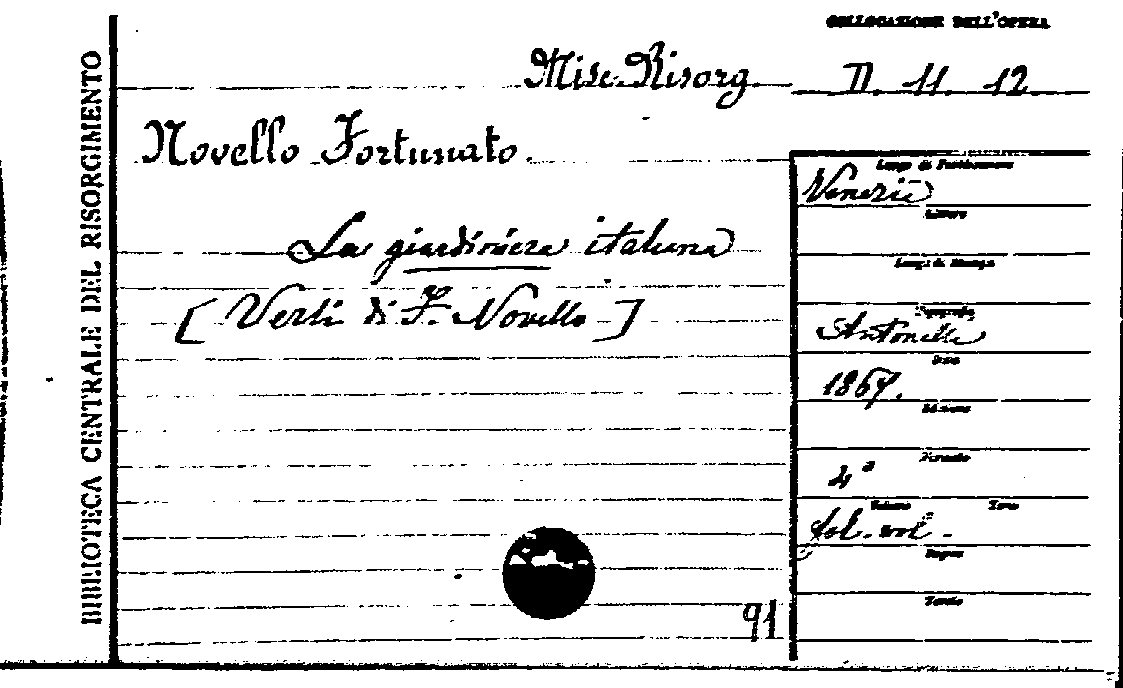 BIBLIOTECA CENTRALE DEL RISORGIMENTO
COLLOCAZIONE DELL'OPERA
Misc. Risorg. II. 11. 12
Novello Fortunato
Luogo di Pubblicazione
Venezia
La giardiniera italiana
[Versi di F. Novello]
Luogo di Stampa
Tipografia
Antonelli
Data
Edizione
Formato
4°
Volume Tomo
fol. vol.
Pagine
Tavole
91